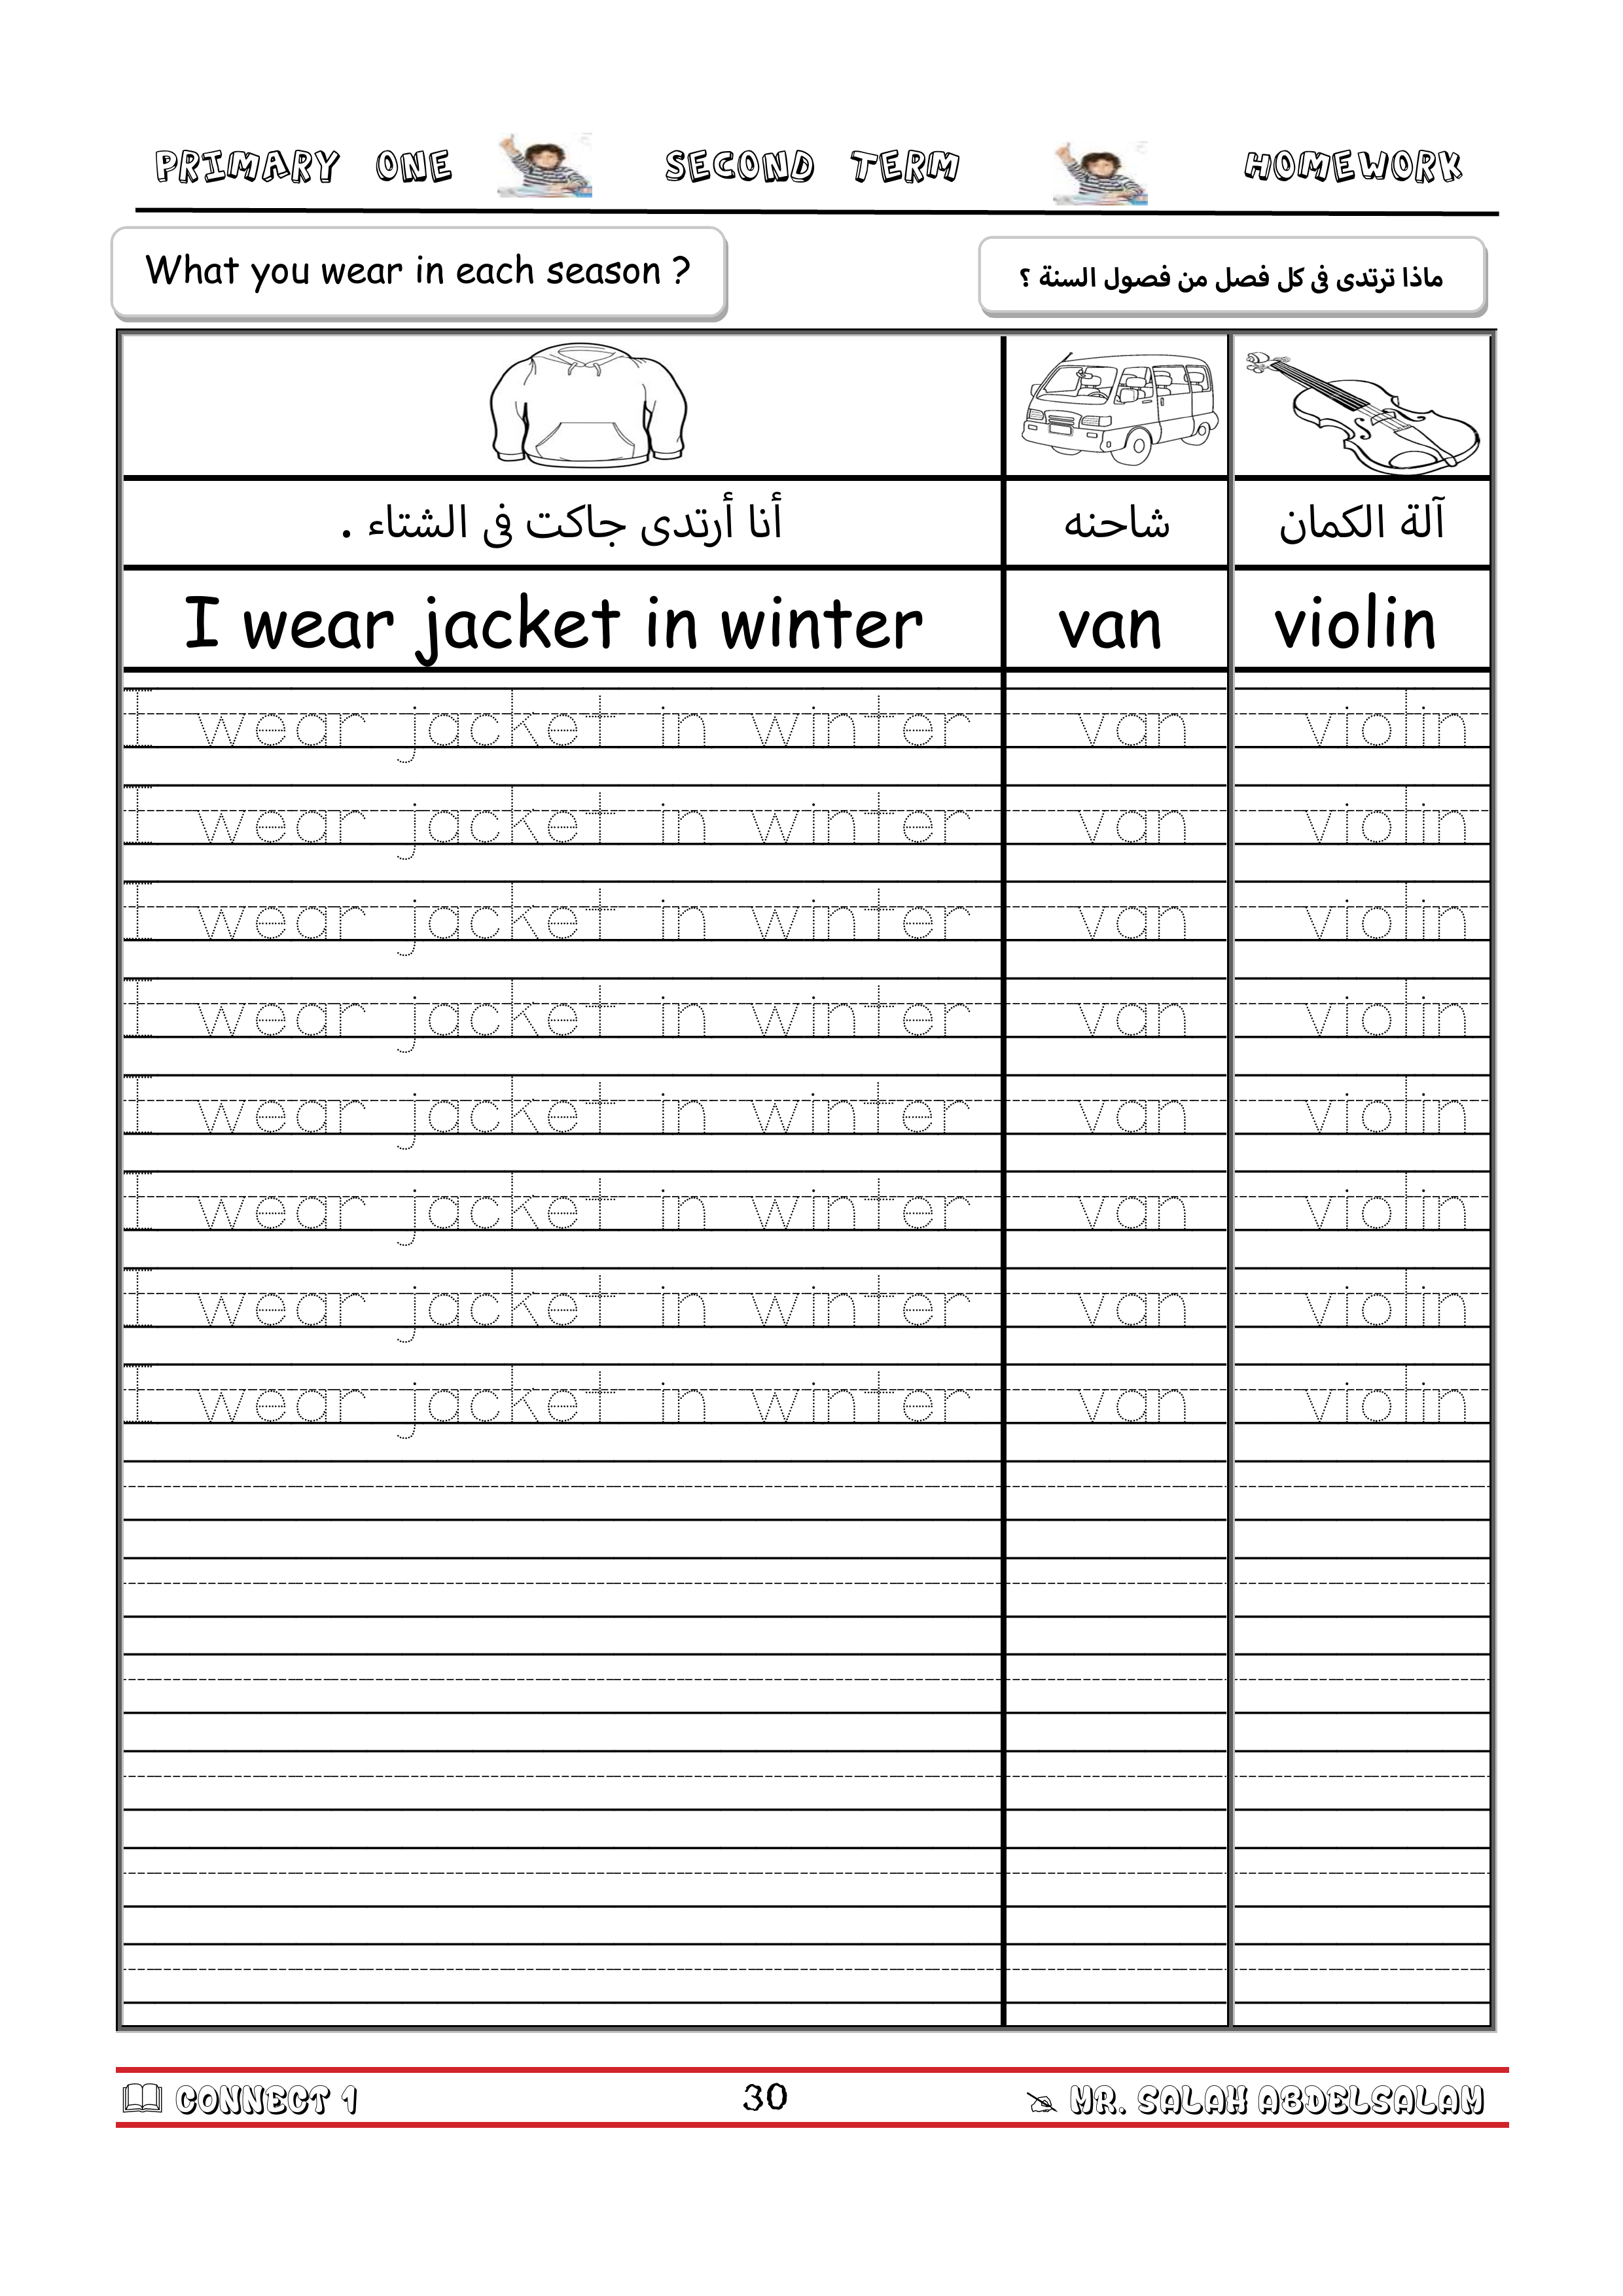 PRIMARY ONE SECOND TERM HOMEWORK
What you wear in each season ?
ماذا ترتدى فى كل فصل من فصول السنة ؟
أنا أرتدى جاكت فى الشتاء .
شاحنه
آلة الكمان
I wear jacket in winter
van
violin
I wear jacket in winter van violin
I wear jacket in winter van violin
I wear jacket in winter van violin
I wear jacket in winter van violin
I wear jacket in winter van violin
I wear jacket in winter van violin
I wear jacket in winter van violin
I wear jacket in winter van violin
CONNECT 1 30 MR. SALAH ABDELSALAM